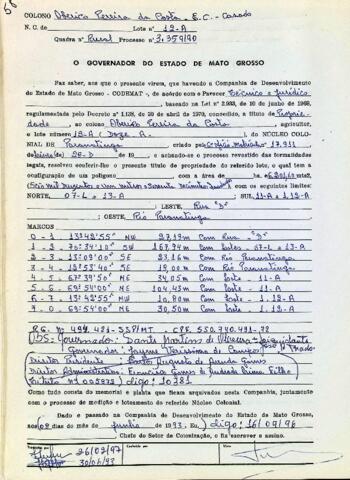 COLONO Oberico Pereira da Costa - E.C. - Casado
N. C. de Lote n° 12-A
Quadra n° Rural Processo n° 3.359/90
O GOVERNADOR DO ESTADO DE MATO GROSSO
Faz saber, aos que o presente virem, que havendo a Companhia de Desenvolvimento
do Estado de Mato Grosso - CODEMAT -, de acordo com o Parecer Técnico e Jurídico
, baseado na Lei n° 2.933, de 10 de junho de 1969,
regulamentado pelo Decreto n° 1.138, de 20 de abril de 1970, concedido, a título de Proprie
dade, ao colono Oberico Pereira da Costa agricultor,
o lote número 12-A (Doze A. ), do NÚCLEO COLO-
NIAL DE Paranatinga criado pela 17.911
e achando-se o processo revestido das formalidades
legais, resolveu conferir-lhe o presente título de propriedade do referido lote, o qual tem a
configuração de um polígono com a área de m2.
com os seguintes limites:
NORTE, 07-L e 13-A
; LESTE, Rua "D"
; SUL, 11-A e 12-A
; OESTE, Rio Paranatinga
MARCOS
0 - 1 13°42'55" NW 27,19m Com Rua - "D"
1 - 2 70°34'10" SW 167,74m Com Lotes - 07-L e 13-A
2 - 3 13°09'00" SE 23,16m Com Rio Paranatinga
3 - 4 12°53'40" SE 19,00m Com Rio Paranatinga
4 - 5 67°39'50" NE 34,05m Com Lote - 11-A
5 - 6 69°54'00" NE 104,43m Com Lote - 11-A
6 - 7 13°42'55" NW 10,80m Com Lote - 12-A
7 - 0 69°54'00" NE 30,50m Com Lote - 12-A
R.G. n° 499.481-SSP/MT - CPF. 550.740.491-72
OBS: Governador: Dante Martins de Oliveira
Governador: Jayme Veríssimo de Campos
Diretor Presidente Augusto de Arruda Gomes
Diretor Administrativo: Francisco Gomes de Andrade Lima Filho
digo: 10381
Como tudo consta do memorial e planta que ficam arquivados nesta Companhia, juntamente
com o processo de medição e loteamento do referido Núcleo Colonial.
Dado e passado na Companhia de Desenvolvimento do Estado de Mato Grosso,
aos 02 dias do mês de junho de 1993. Eu, digo: 16/09/96
, Chefe do Setor de Colonização, o fiz escrever e assino.
26/02/97
30/04/93